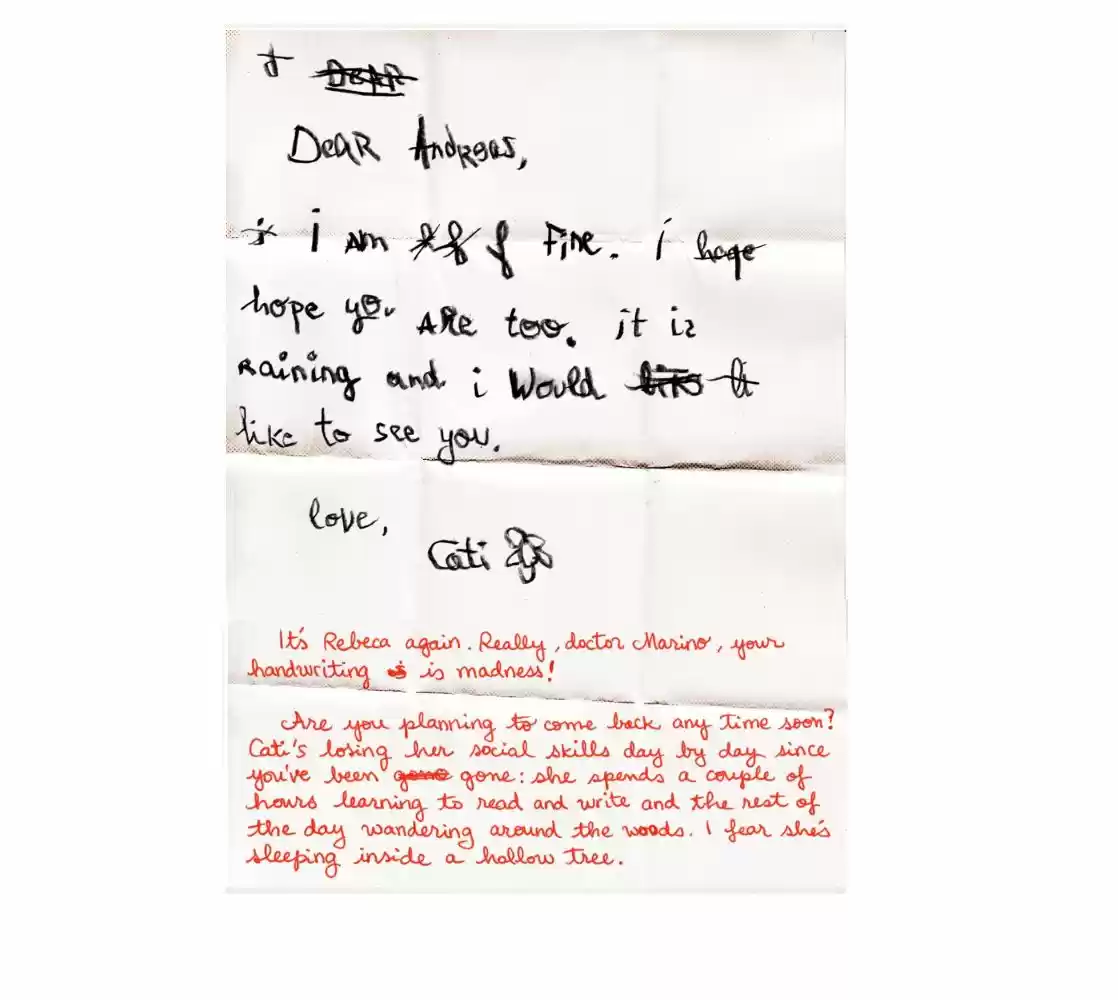 DEAR
DeaR Andreas,
i am Fine. i hope
hope you ARe too. it is
raining and i Would like li
like to see you.
love,
Cati
It's Rebeca again. Really, doctor Marino, your
handwriting is is madness!
Are you planning to come back any time soon?
Cati's losing her social skills day by day since
you've been gone gone: she spends a couple of
hours learning to read and write and the rest of
the day wandering around the woods. I fear she's
sleeping inside a hollow tree.